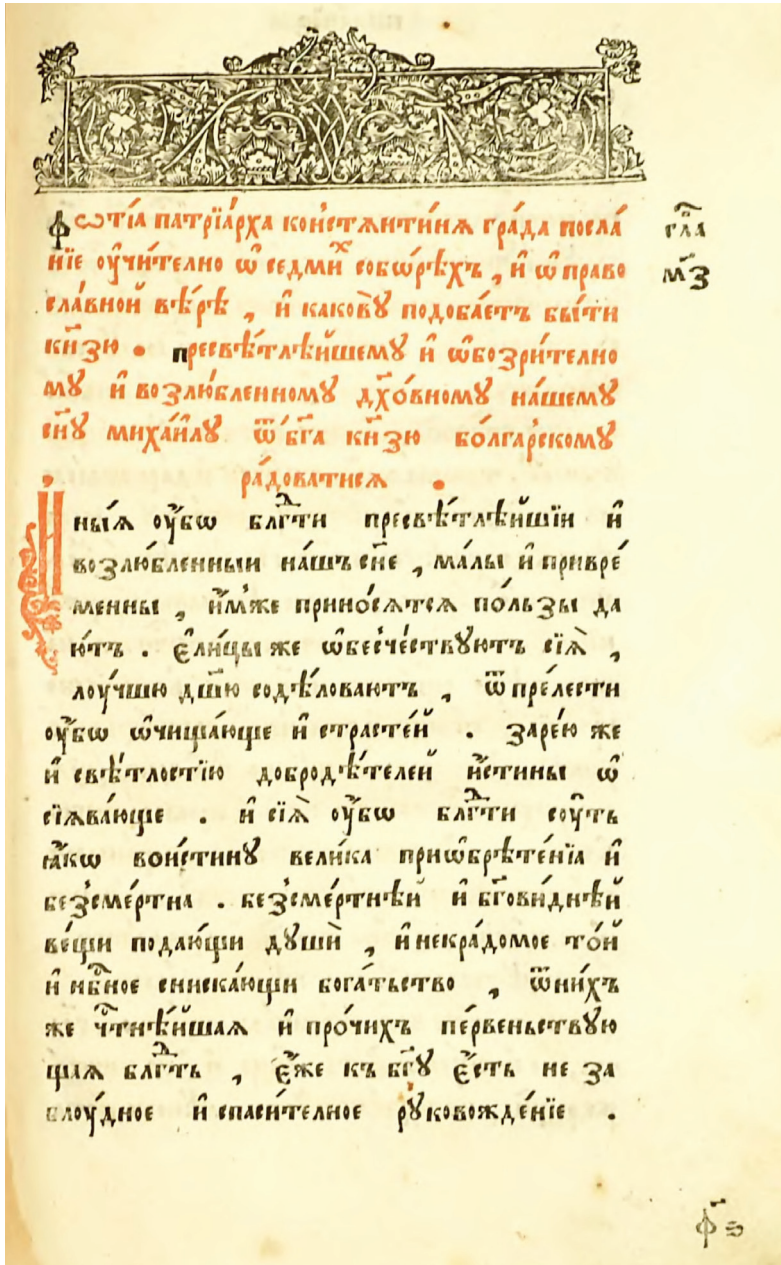 Фѡті́а патрїа́рха кон̾стѧнти́нѧ гра́да посла́
нїе оу҆чи́телно ѡ҆ седми́ хъ собѡ́рѣхъ , и҆ ѡ҆ право
сла́вной вѣ́рѣ , и҆ каковꙋ̀ подоба́етъ бы́ти
кн҃зю . пресвѣ́тлѣйшемꙋ и҆ ѡ҆бозри́телно
мꙋ и҆ возлю́бленномꙋ дх҃о́вномꙋ на́шемꙋ
сн҃ꙋ миха́илꙋ ѿ бг҃а кн҃зю бо́лгарскомꙋ
ра́доватисѧ .
гла
м҃з
И҆ны́ѧ оу҆́бѡ блг҃ти пресвѣ́тлѣйшїи и҆
возлю́бленныи на́шъ сн҃е , ма́лы и҆ привре́
менны , и҆́мже прино́сѧтсѧ по́льзы да
ю́тъ . є҆ли́цы же ѡ҆бесче́ствꙋютъ сїѧ̀ ,
лоу́чшю дш҃ю содѣ́ловаютъ , ѿ пре́лести
оу҆́бѡ ѡ҆чища́юще и҆ страсте́й . заре́ю же
и҆ свѣ́тлостїю добродѣ́телей и҆́стины ѡ҆
сїѧва́юще . и҆ сїѧ̀ оу҆́бѡ блг҃ти соу́ть
ꙗ҆́кѡ вои́стинꙋ вели́ка приѡ҆брѣте́нїа и҆
без̾сме́ртна . без̾сме́ртнѣй и҆ бг҃ови́днѣй
ве́щи подаю́щи дꙋшѝ , и҆ некра́домое то́й
и҆ нб҃ное сниска́ющи бога́тьство , ѿ ни́хъ
же чт҃нѣ́йшаѧ и҆ про́чихъ пе́рвеньствꙋю
щиѧ блг҃ть , є҆́же къ бг҃ꙋ є҆́сть не за
блоу́дное и҆ спаси́телное рꙋковожде́нїе .
ф҃ѕ